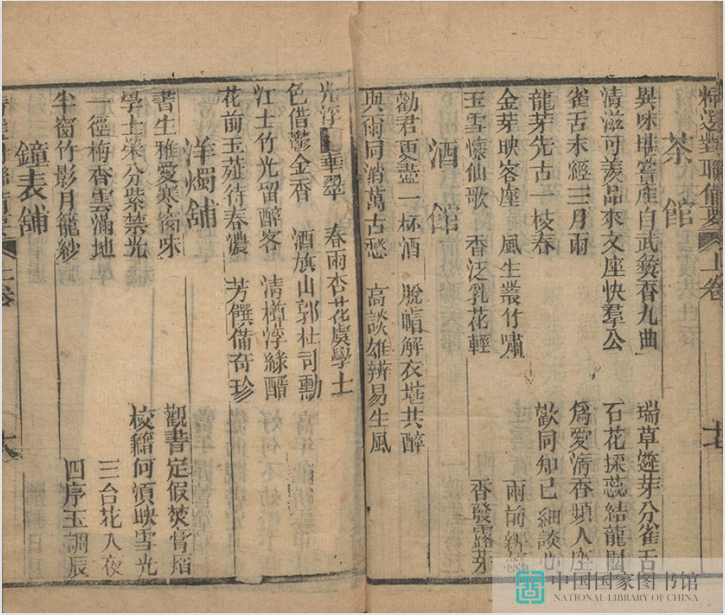 精選對聯備要 上卷
茶館
異味堪嘗產自武彝香九曲 瑞草 芽分雀舌
清滋可羨品來文座快羣公 石花採蕊結龍團
雀舌未經三月雨 為愛清香頻入座
龍芽先占一枝春 歡同知己細談心
金芽映客座 風生叢竹嘯 雨前新
玉雪懷仙歌 香泛乳花輕 香發露芽
酒館
勸君更盡一杯酒 脫帽解衣堪共醉
與爾同消萬古愁 高談雄辨易生風
光浮 華翠 春雨杏花虞學士
色借鬱金香 酒旗山郭杜司勳
江上竹光留醉客 清樽浮綠醑
花前玉蕋待春濃 芳饌備奇珍
洋燭舖
書生雅愛寒窗味 觀書定假焚膏焰
學士榮分紫禁光 校籍何須映雪光
一徑梅香雲滿地 三台花入夜
半窗竹影月籠紗 四序玉調辰
鐘表舖
上卷
中国国家图书馆
NATIONAL LIBRARY OF CHINA